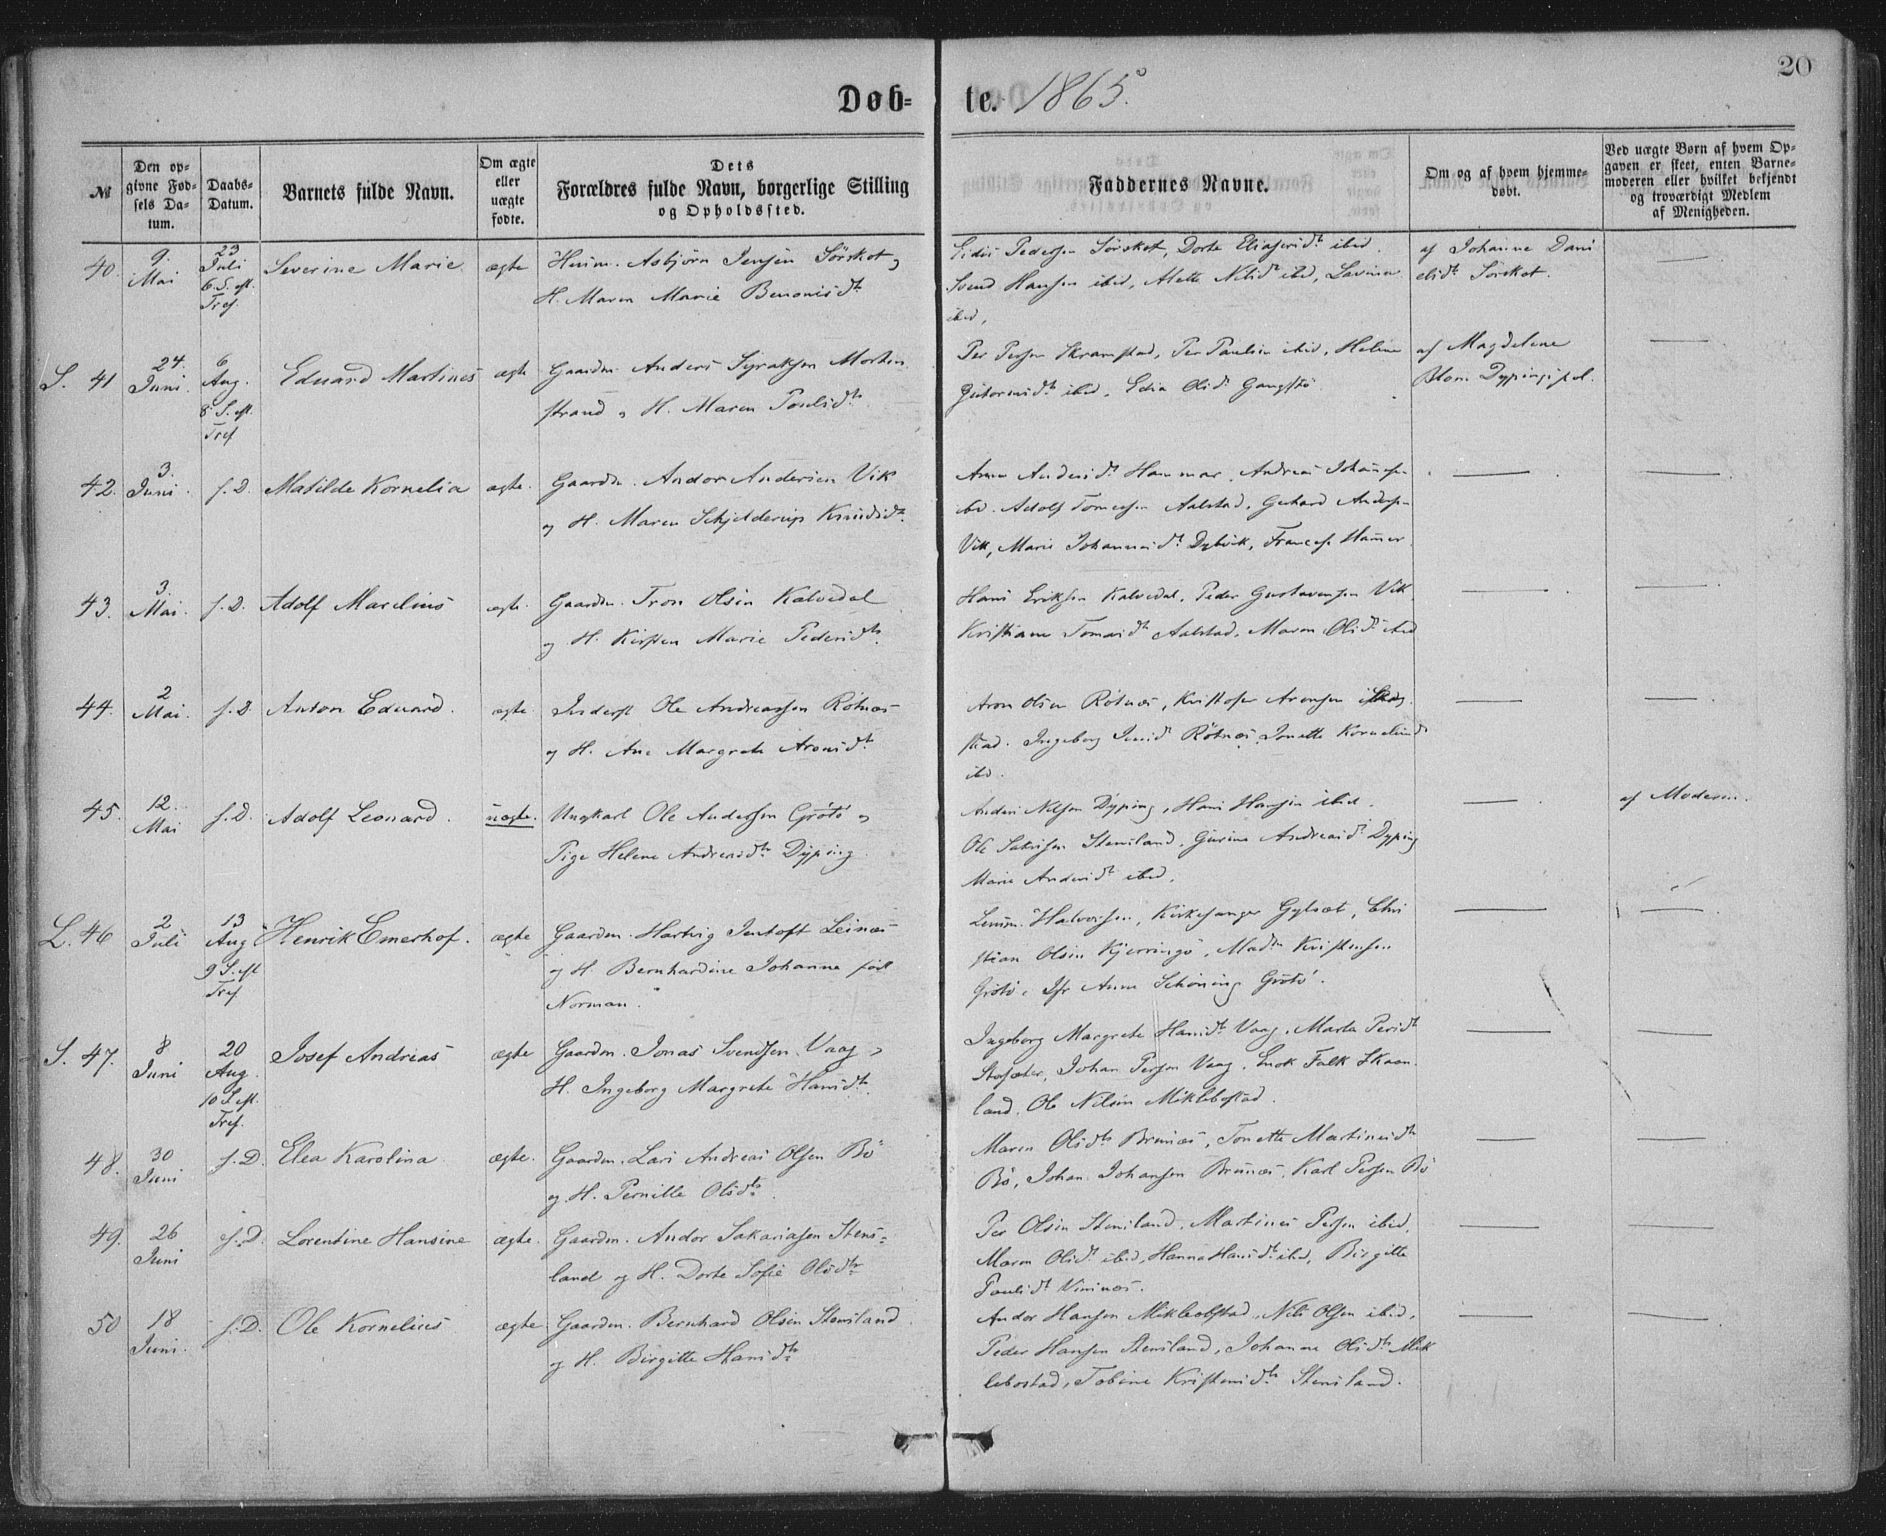 20
Døb-te. 1865.
№
Den opgivne Fødsels Datum.
Daabs-Datum.
Barnets fulde Navn.
Om ægte eller uægte fødte.
Dets Forældres fulde Navn, borgerlige Stilling og Opholdssted.
Faddernes Navne.
Om og af hvem hjemmedøbt.
Ved uægte Børn af hvem Opgaven er skeet, enten Barnemoderen eller hvilket bekjendt og troværdigt Medlem af Menigheden.
40. 9. Mai 23 Juli 6. S. eft. Tref. Severine Marie ægte
Huusm. Asbjørn Jensen Sørskot og
H. Maren Marie Benonisdt.
Pedersen Sørskot, Dorte Eliasesdt. ibid.
Svend Hansen ibid, Mette Nilsdt ibid,
ibid,
af Johanne Dani
elsdt. Sørskot.
S. 41 24. Juni. 6 Aug. 8 S. eft. Tref Eduard Martines ægte
Gaardm. Anders Syraksen Morten
strand og H. Maren Poulsdt.
Per Persen Skramstad, Per Paulsen ibid, Heline
Gutormsdt. ibid, Edia Olsdt.
af Magdelene
Blom Dypingspol.
42. 3. Juni. s. D. Matilde Kornelia ægte.
Gaardm. Andor Andersen Vik
og H. Maren Schjelderup Knudsdt.
Anne Andersdt. Hammar, Andreas Johannes-
ibd. Adolf Tomesen Aalstad, Gerhard Anders-
Vik, Marie Johannesdt. Dybvik, Hamer.
43. 3. Mai. s. D. Adolf Marelius ægte.
Gaardm. Tron Olsen Kalvedal
og H. Kirsten Marie Pedersdt.
Hans Eriksen Kalvedal, Peder Gustavensen Vik
Kristiane Tomasdt. Aalstad, Maren Olsdt. ibid
44. 2 Mai. s. D. Anton Eduard. ægte.
Inderst Ole Andreassen Røtnæs
og H. Ane Margrete Aronsdt.
Aron Olsen Røtnæs, Kristofer Aronsen
stad. Ingeborg Jensdt Røtnæs, Jonette Korneliusdt
ibd.
45. 12. Mai s. D. Adolf Leonard. uægte.
Ungkarl Ole Andersen Grøtø og
Pige Helene Andreasdt. Dyping.
Anders Nilsen Dyping, Hans Hansen ibid.
Ole Sakrisen Stensland, Gurine Andreasdt. Dyping
Marie Andersdt. ibid.
af Moderen.
L. 46 2 Juli 13 Aug 9 S. eft Tref. Henrik Emerhof. ægte
Gaardm. Hartvig Jentoft Leines
og H. Bernhardine Johanne født
Norman.
Halvorsen, Kirkesanger Gylseth, Chri
stian Olsen Kjerringø, Kristensen
Grøtø. Jfr Anne Schøning Grøtø.
S. 47. 8 Juni 20 Aug. 10 S. eft. Tref. Josef Andreas ægte
Gaardm. Jonas Svendsen Vaag og
H. Ingeborg Margrete Hansdt.
Ingeborg Margrete Hansdt. Vaag, Marta Persdt
Storsæter, Johan Persen Vaag, Enok Falk Skaan
land. Ole Nilsen Miklebostad.
48. 30 Juni s. D. Elea Karolina ægte.
Gaardm. Lars Andreas Olsen Bø
og H. Pernille Olsdt.
Maren Olsdt Brunæs, Tonette Martinusdt
Bø, Johan Johansen Brunæs, Karl Persen Bø
49. 26 Juni s. D. Lorentine Hansine ægte.
Gaardm. Andor Sakariasen Stens-
land og H. Dorte Sofie Olsdt.
Per Olsen Stensland, Martines Persen ibid,
Maren Olsdt. ibid, Hanna Hansdt. ibid, Birgitte
Paulsdt.
50 18 Juni. s. D. Ole Kornelius ægte
Gaardm. Bernhard Olsen Stensland
og H. Birgitte Hansdt.
Andor Hansen Miklebostad, Nils Olsen ibid,
Peder Hansen Stensland, Johanne Olsdt. Mik
lebostad, Tobine Kristensdt. Stensland.